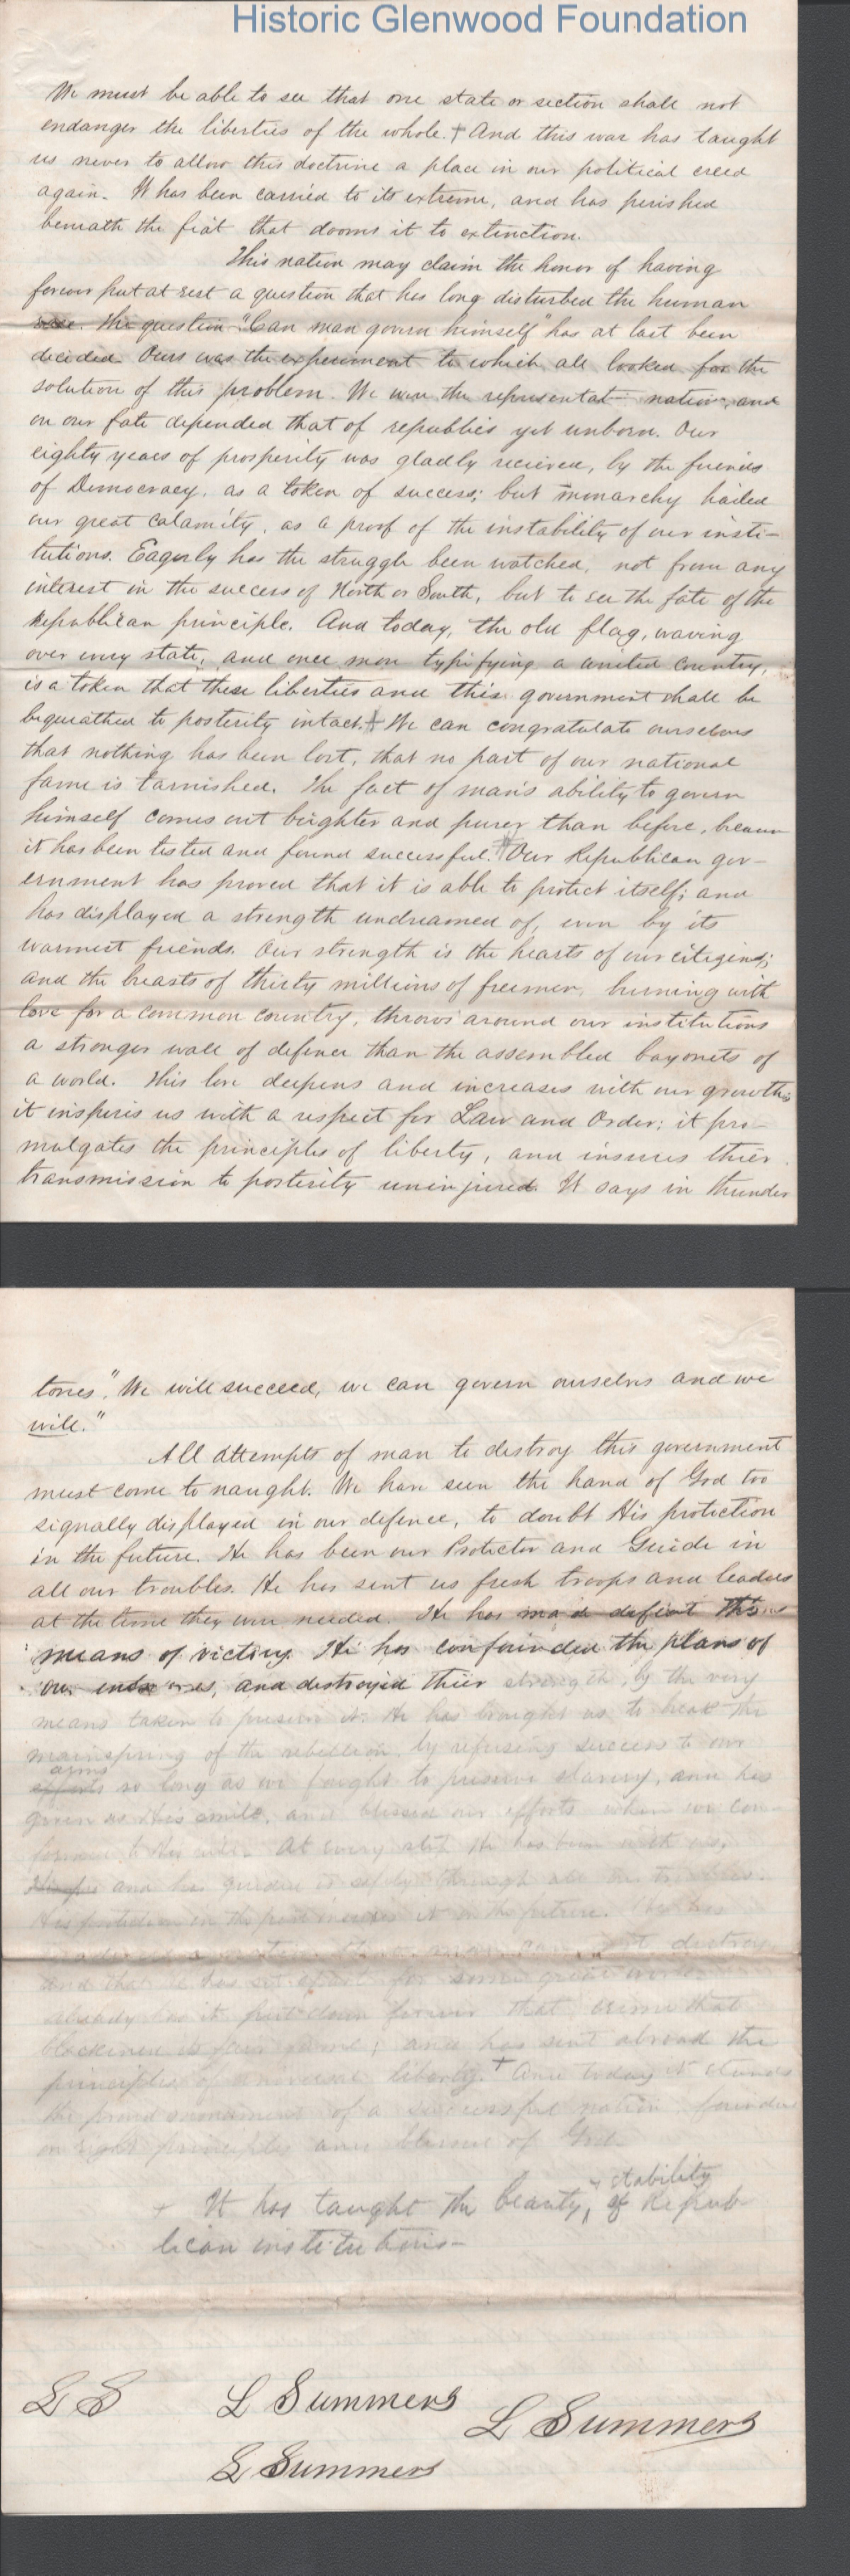 Historic Glenwood Foundation
We must be able to see that one state or section shall not
endanger the liberties of the whole.+ And this war has taught
us never to allow this doctrine a place in our political creed
again. It has been carried to its extreme, and has perished
beneath the fiat that dooms it to extinction.
This nation may claim the honor of having
forever put at rest a question that has long disturbed the human
race. The question "Can man govern himself" has at last been
decided. Ours was the experiment to which all looked for the
solution of this problem. We were the representat nation, and
on our fate depended that of republics yet unborn. Our
eighty years of prosperity was gladly recieved, by the friends
of Democracy, as a token of success; but monarchy hailed
our great calamity, as a proof of the instability of our insti-
tutions. Eagerly has the struggle been watched, not from any
interest in the success of North or South, but to see the fate of the
republican principle. And today, the old flag, waving
over every state, and once more typifying a united country,
is a token that these liberties and this government shall be
bequeathed to posterity intact.+ We can congratulate ourselves
that nothing has been lost, that no part of our national
fame is tarnished. The fact of man's ability to govern
himself comes out brighter and purer than before, because
it has been tested and found successful. Our Republican gov-
ernment has proved that it is able to protect itself; and
has displayed a strength undreamed of, even by its
warmest friends. Our strength is the hearts of our citizens;
and the breasts of thirty millions of freemen, burning with
love for a common country, throws around our institutions
a stronger wall of defence than the assembled bayonets of
a world. This love deepens and increases with our growth;
it inspires us with a respect for Law and Order; it pro-
mulgates the principles of liberty, and insures thier
transmission to posterity uninjured. It says in thunder
tones, "We will succeed, we can govern ourselves and we
will."
All attempts of man to destroy this government
must come to naught. We have seen the hand of God too
signally displayed in our defence, to doubt His protection
in the future. He has been our Protector and Guide in
all our troubles. He has sent us fresh troops and leaders
at the time they were needed. He has made defeat the
means of victory. He has confounded the plans of
our enemies, and destroyed thier strength, by the very
means taken to preserve it. He has brought us to break the
mainspring of the rebellion, by refusing success to our
arms
efforts so long as we fought to preserve slavery, and has
given us His smile, and blessed our efforts when we con-
formed to His will. At every step He has been with us.
and has guided us safely through all our troubles.
His protection in the past insures it in the future. He has
a nation that man cannot destroy
and that he has set apart for some great work
already has it put down forever that crime that
blackened its fair name; and has sent abroad the
principles of universal liberty.+ And today it stands
the proud monument of a successful nation founded
on right principles and blessed of God.
+ It has taught the beauty, + stability
of Repub
lican institutions-
L S
L Summers
L Summers
L Summers